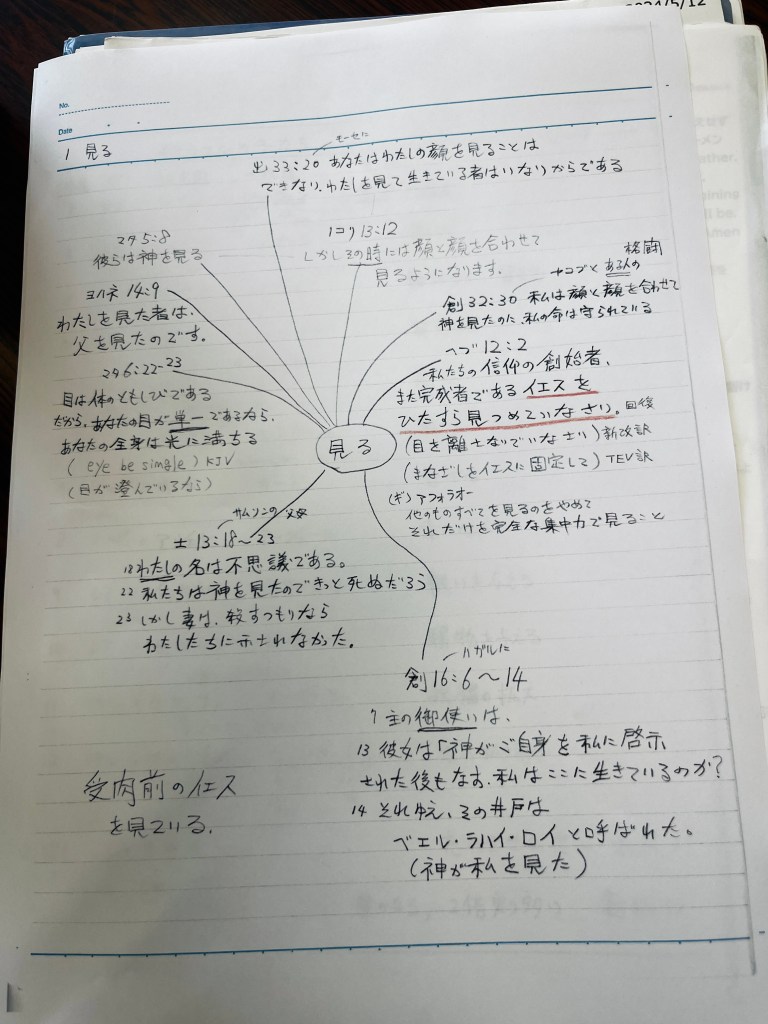 2024/5/12
No.
Date
1 見る
モーセに
出33:20 あなたはわたしの顔を見ることは
できない、わたしを見て生きている者はいないからである
マタ5:8
彼らは神を見る
1コリ13:12
しかしその時には顔と顔を合わせて
見るようになります。
ヨハネ14:9
わたしを見た者は、
父を見たのです。
格闘
ヤコブと ある人の
創32:30 私は顔と顔を合わせて
神を見たのに、私の命は守られている
マタ6:22-23
目は体のともしびである
だから、あなたの目が単一であるなら、
あなたの全身は光に満ちる
(eye be single) KJV
(目が澄んでいるなら)
ヘブ12:2
私たちの信仰の創始者、
また完成者であるイエスを
ひたすら見つめていなさい。回復
(目を離さないでいなさい) 新改訳
(まなざしをイエスに固定して) TEV訳
(ギ) アフォラオー
他のものすべてを見るのをやめて
それだけを完全な集中力で見ること
見る
サムソンの父母
士13:18〜23
18 わたしの名は不思議である。
22 私たちは神を見たのできっと死ぬだろう
23 しかし妻は、殺すつもりなら
わたしたちに示されなかった。
ハガルに
創16:6〜14
7 主の御使いは、
13 彼女は「神がご自身を私に啓示
された後もなお、私はここに生きているのか?
14 それゆえ、その井戸は
ベエル・ラハイ・ロイと呼ばれた。
(神が私を見た)
受肉前のイエス
を見ている.